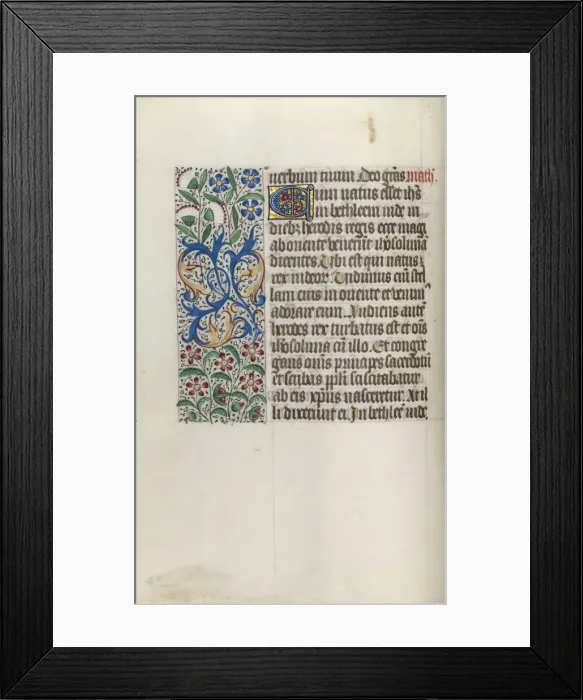 uerbum tuum Deo grās math
Cum natus esset ihs
in bethleem iude in
diebꝫ herodis regis ecce magi
ab oriente venerūt iherosolimā
dicentes. Vbi est qui natus ē
rex iudeoꝝ. Vidimus eni stel
lam eius in oriente et venim9
adorare eum. Audiens autē
herodes rex turbatus est et oīs
iherosolima cū illo. Et congre
gans omīs principes sacerdotū
et scribas ppli sciscitabatur
ab eis xpūs nasceretur. At il
li dixerunt ei. In bethleē iude